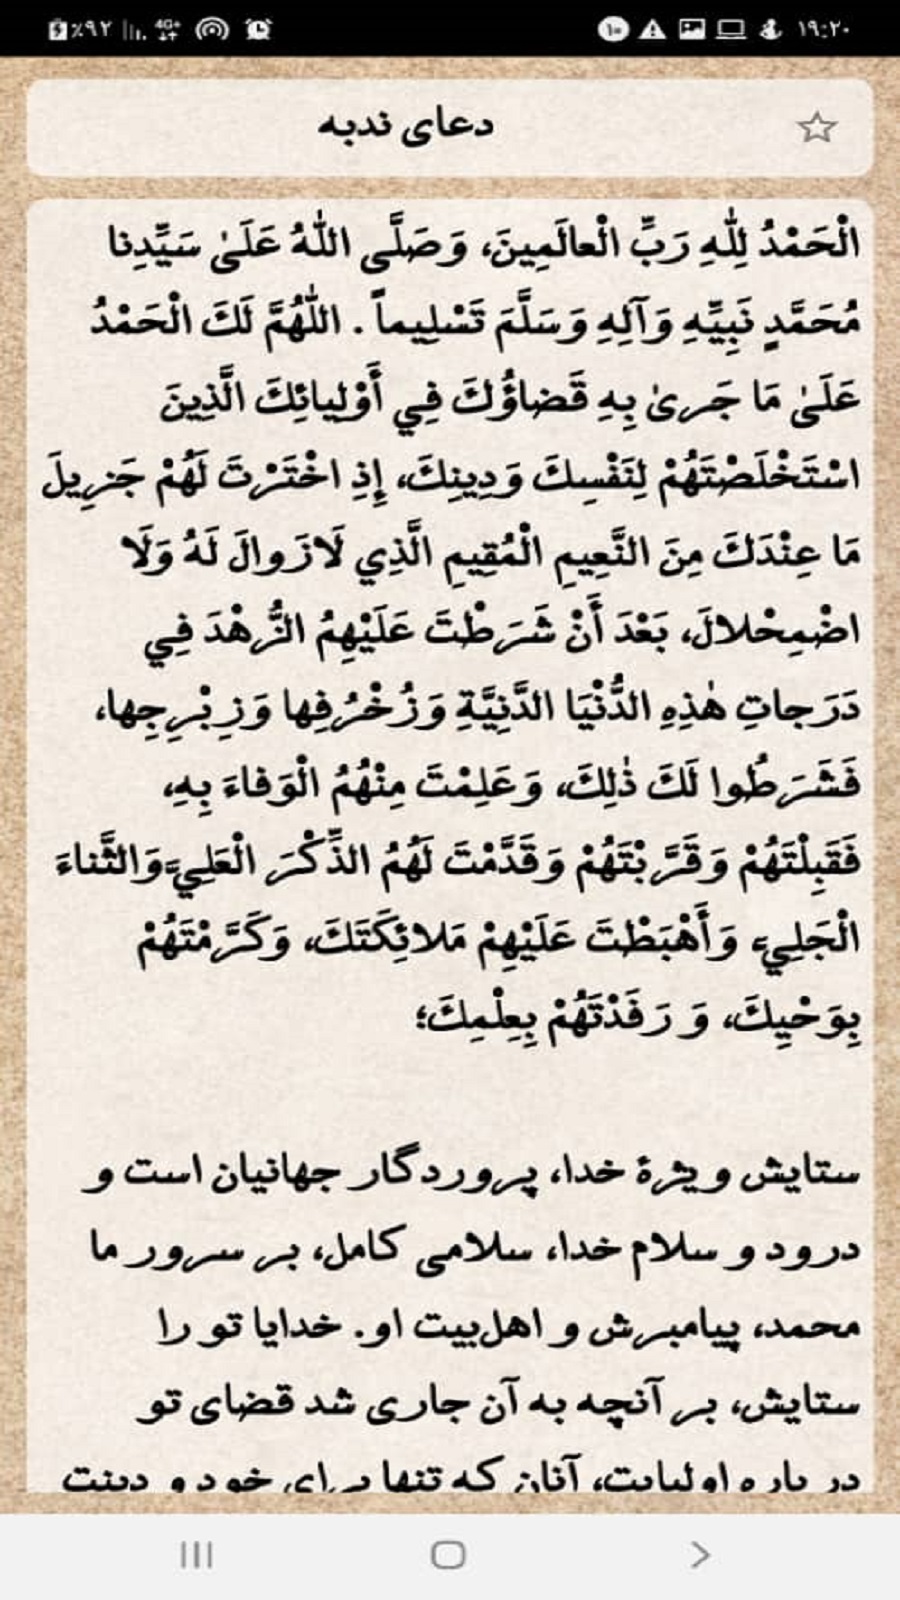 ۱۹:۲۰
۱۰
4G+
٪۹۲
دعای ندبه
الْحَمْدُ لِلّٰهِ رَبِّ الْعالَمِينَ، وَصَلَّى اللّٰهُ عَلَىٰ سَيِّدِنا
مُحَمَّدٍ نَبِيِّهِ وَآلِهِ وَسَلَّمَ تَسْلِيماً . اللّٰهُمَّ لَكَ الْحَمْدُ
عَلَىٰ مَا جَرىٰ بِهِ قَضاؤُكَ فِي أَوْلِيائِكَ الَّذِينَ
اسْتَخْلَصْتَهُمْ لِنَفْسِكَ وَدِينِكَ، إِذِ اخْتَرْتَ لَهُمْ جَزِيلَ
مَا عِنْدَكَ مِنَ النَّعِيمِ الْمُقِيمِ الَّذِي لَازَوالَ لَهُ وَلَا
اضْمِحْلالَ، بَعْدَ أَنْ شَرَطْتَ عَلَيْهِمُ الزُّهْدَ فِي
دَرَجاتِ هٰذِهِ الدُّنْيَا الدَّنِيَّةِ وَزُخْرُفِها وَزِبْرِجِها،
فَشَرَطُوا لَكَ ذٰلِكَ، وَعَلِمْتَ مِنْهُمُ الْوَفاءَ بِهِ،
فَقَبِلْتَهُمْ وَقَرَّبْتَهُمْ وَقَدَّمْتَ لَهُمُ الذِّكْرَ الْعَلِيَّ وَالثَّناءَ
الْجَلِيَّ، وَأَهْبَطْتَ عَلَيْهِمْ مَلائِكَتَكَ، وَكَرَّمْتَهُمْ
بِوَحْيِكَ، وَ رَفَدْتَهُمْ بِعِلْمِكَ؛
ستایش ویژهٔ خدا، پروردگار جهانیان است و
درود و سلام خدا، سلامی کامل، بر سرور ما
محمد، پیامبرش و اهل‌بیت او. خدایا تو را
ستایش، بر آنچه به آن جاری شد قضای تو
در باره اولیایت، آنان که تنها برای خود و دینت